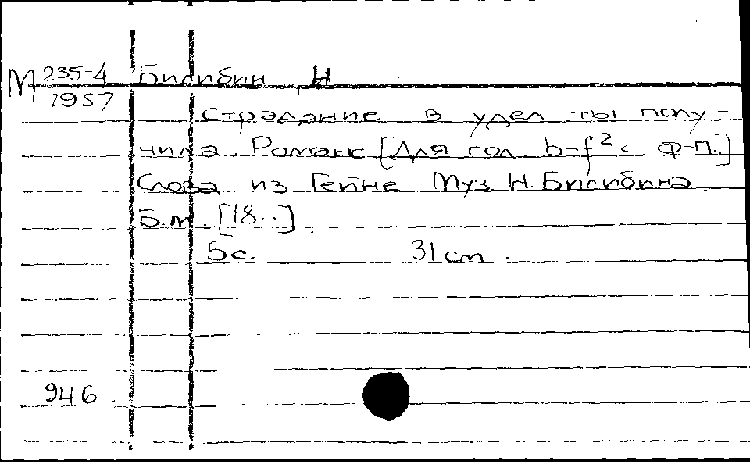 М 235-4 Бисибин Н
1957
Страдание в удел ты полу-
чила. Романс [Для гол. b-f² с ф-п.]
Слова из Гейне Муз Н. Бисибина
Б.м. [18..].
5 с. 31 cm.
946